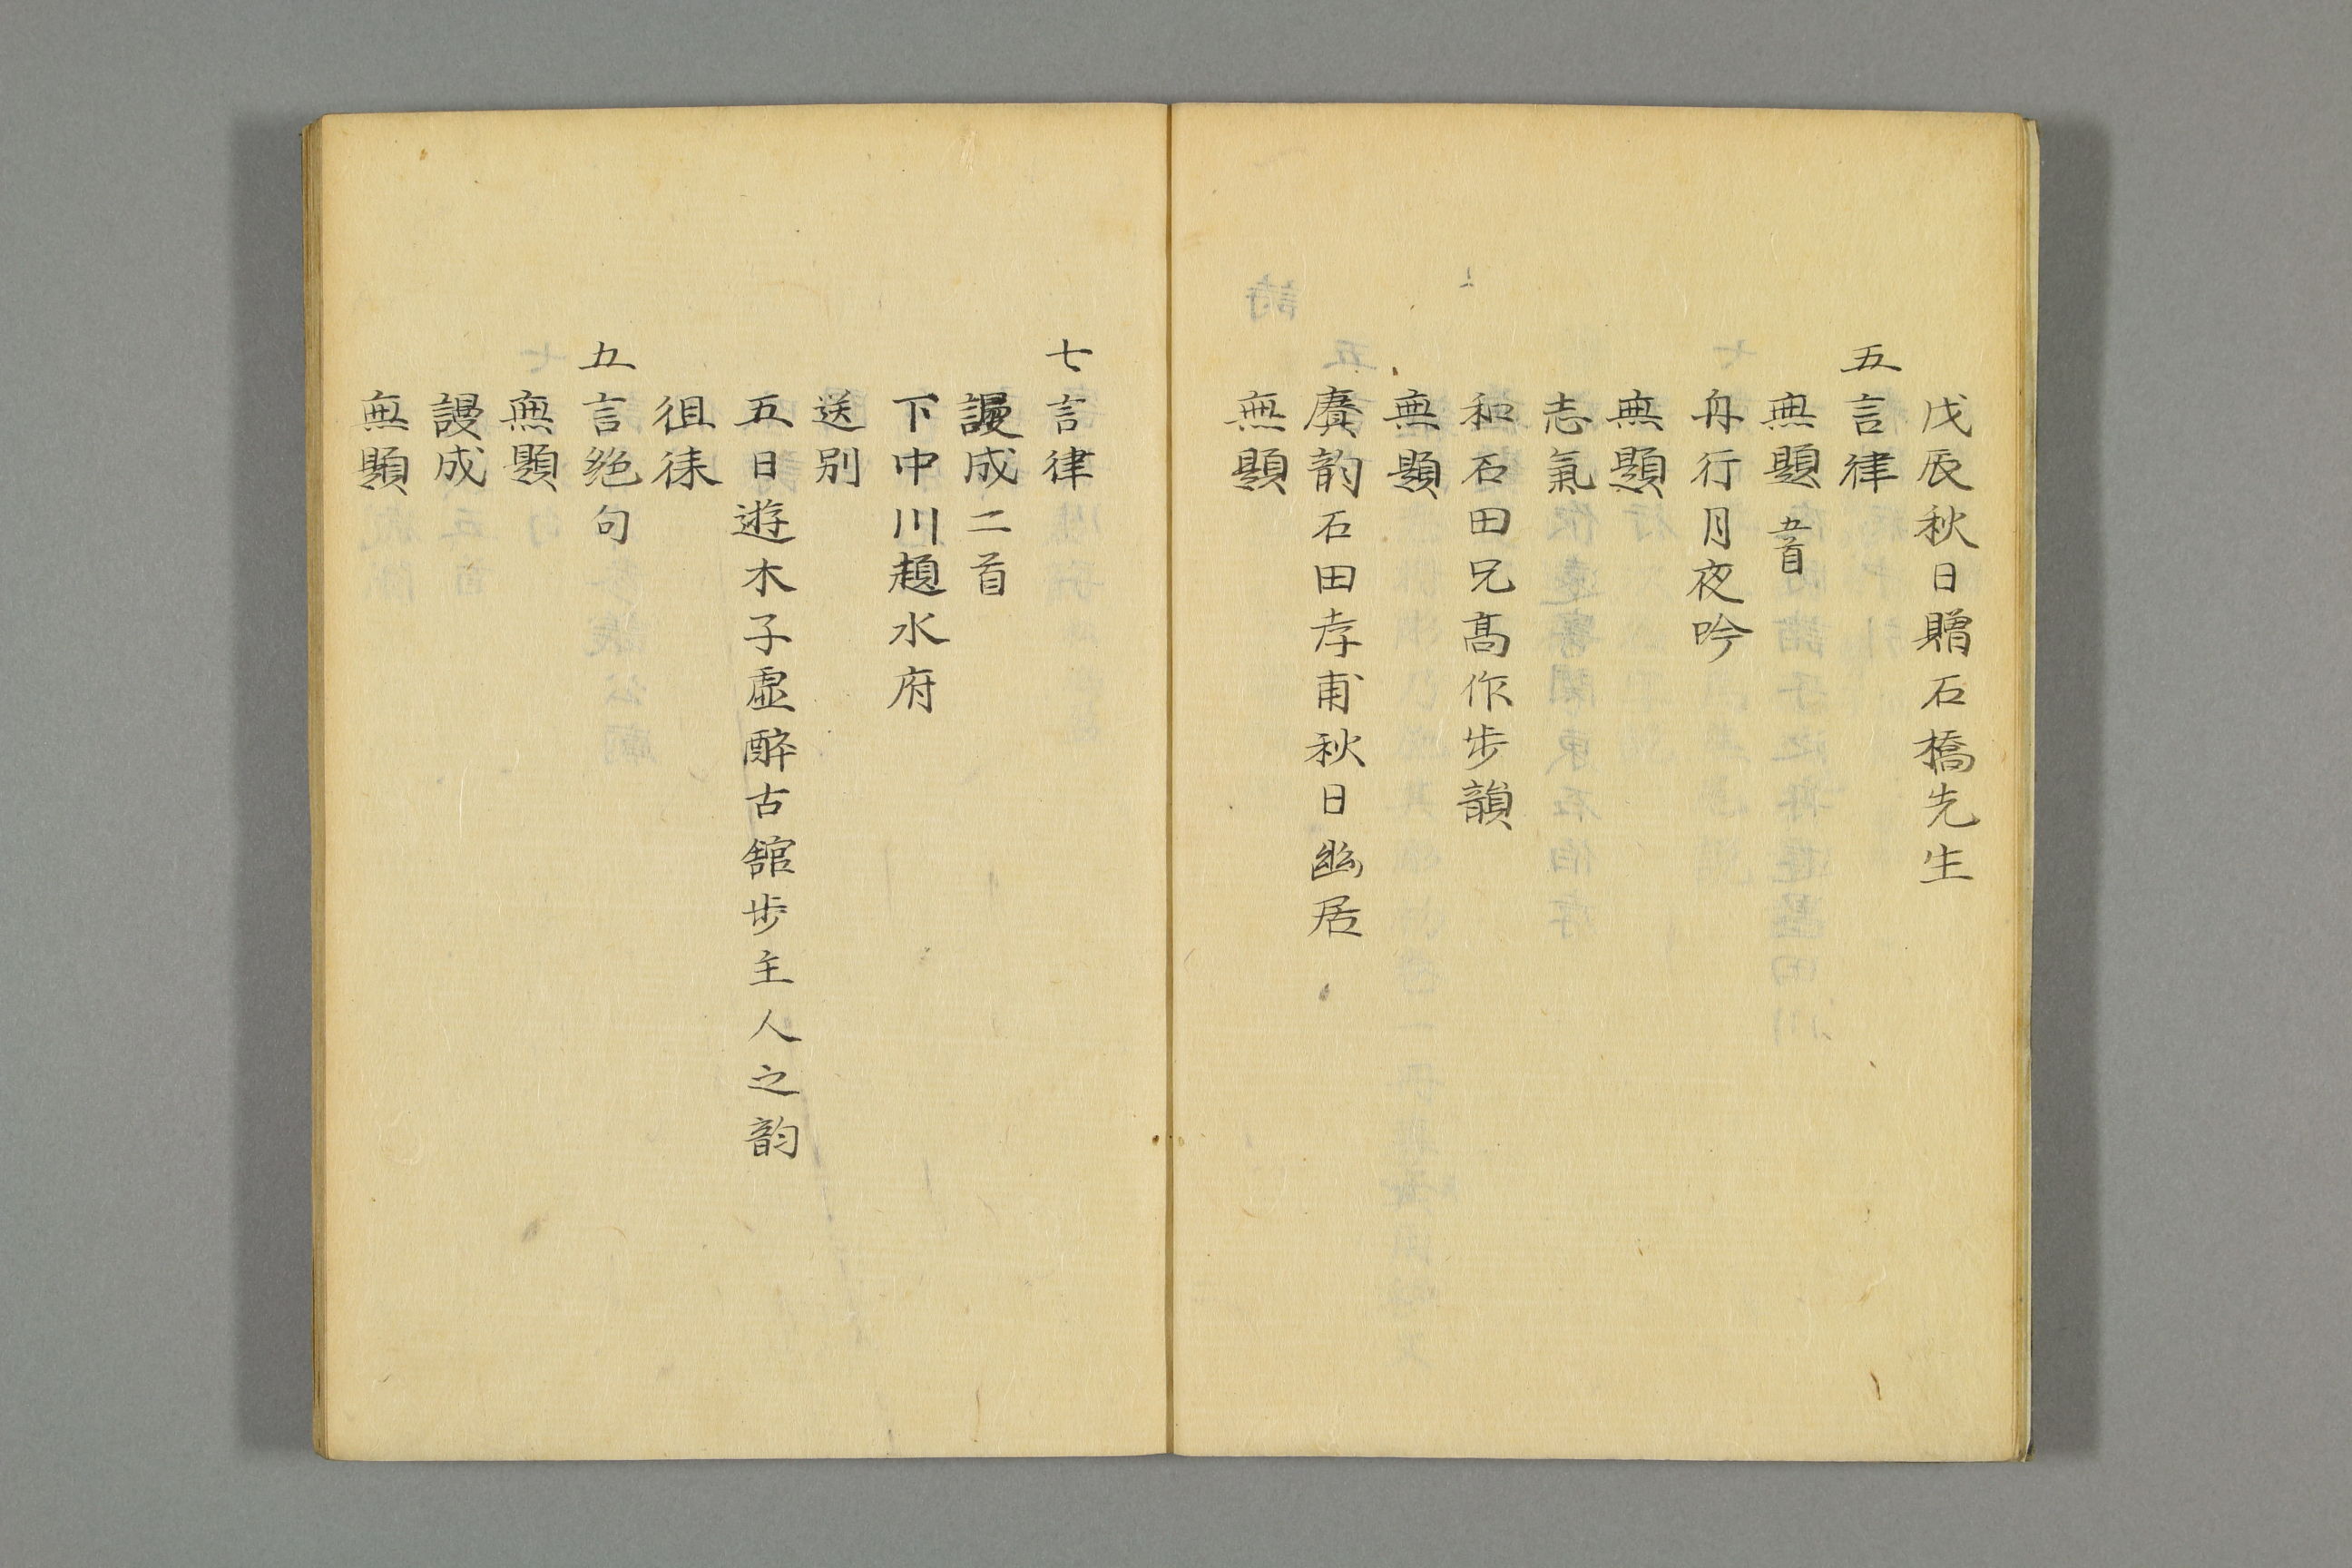 戊辰秋日贈石橋先生
五言律
無題 五首
舟行月夜吟
無題
志氣
和石田兄高作步韻
無題
賡韵石田孝甫秋日幽居
無題
七言律
謾成二首
下中川趨水府
送別
五日遊木子虛醉古舘步主人之韵
徂徠
五言絶句
無題
謾成
無題